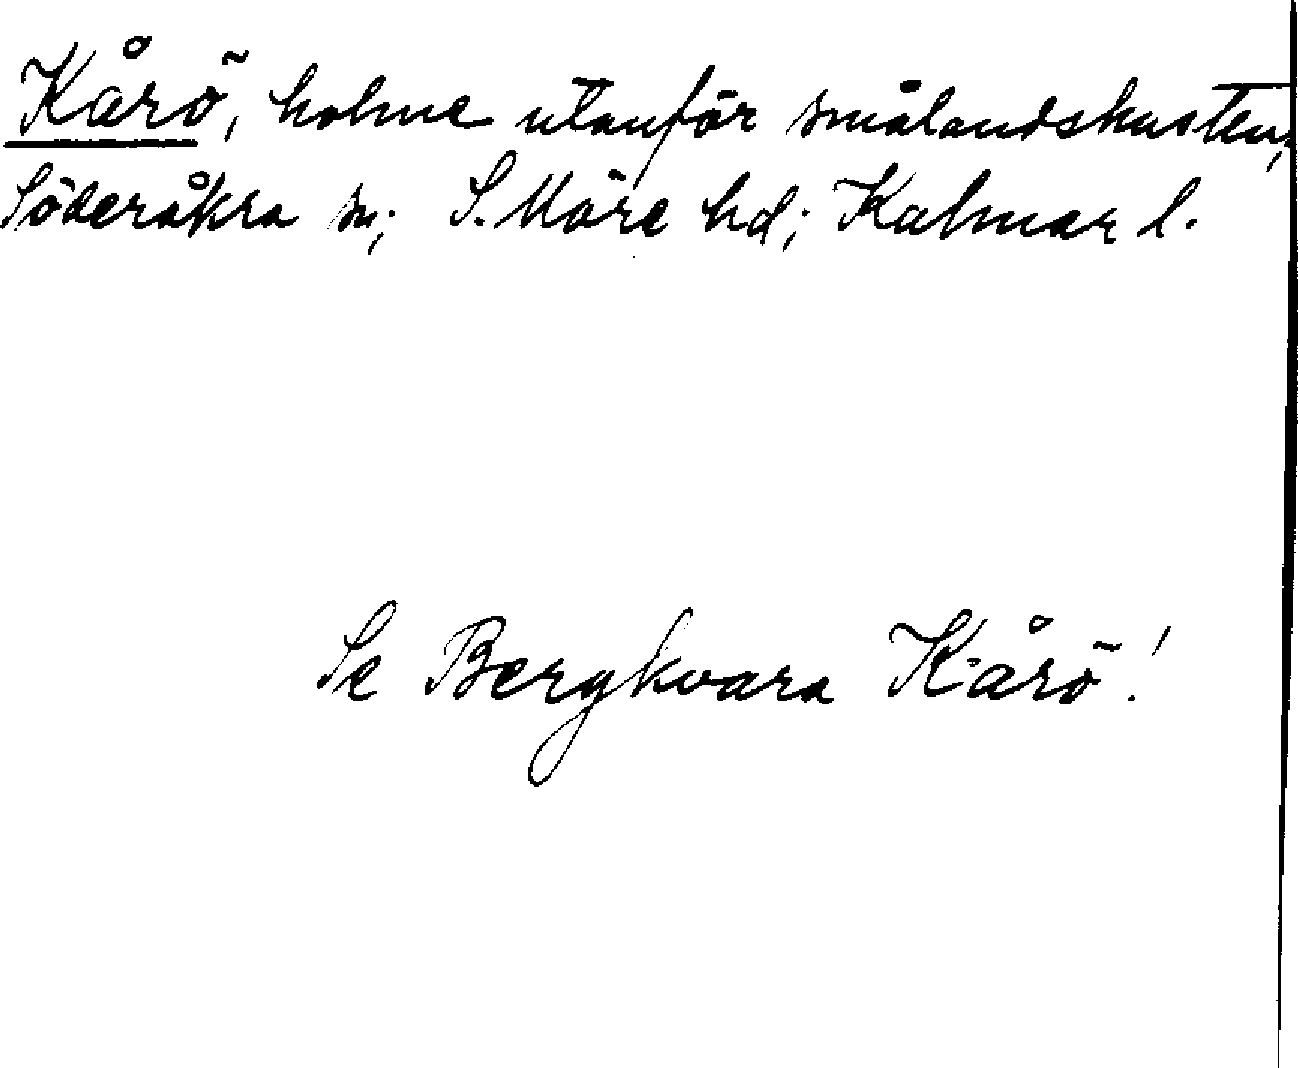 Kårö, holme utanför smålandskusten,
Söderåkra sn; S. Möre hd; Kalmar l.
Se Bergkvara Kårö!